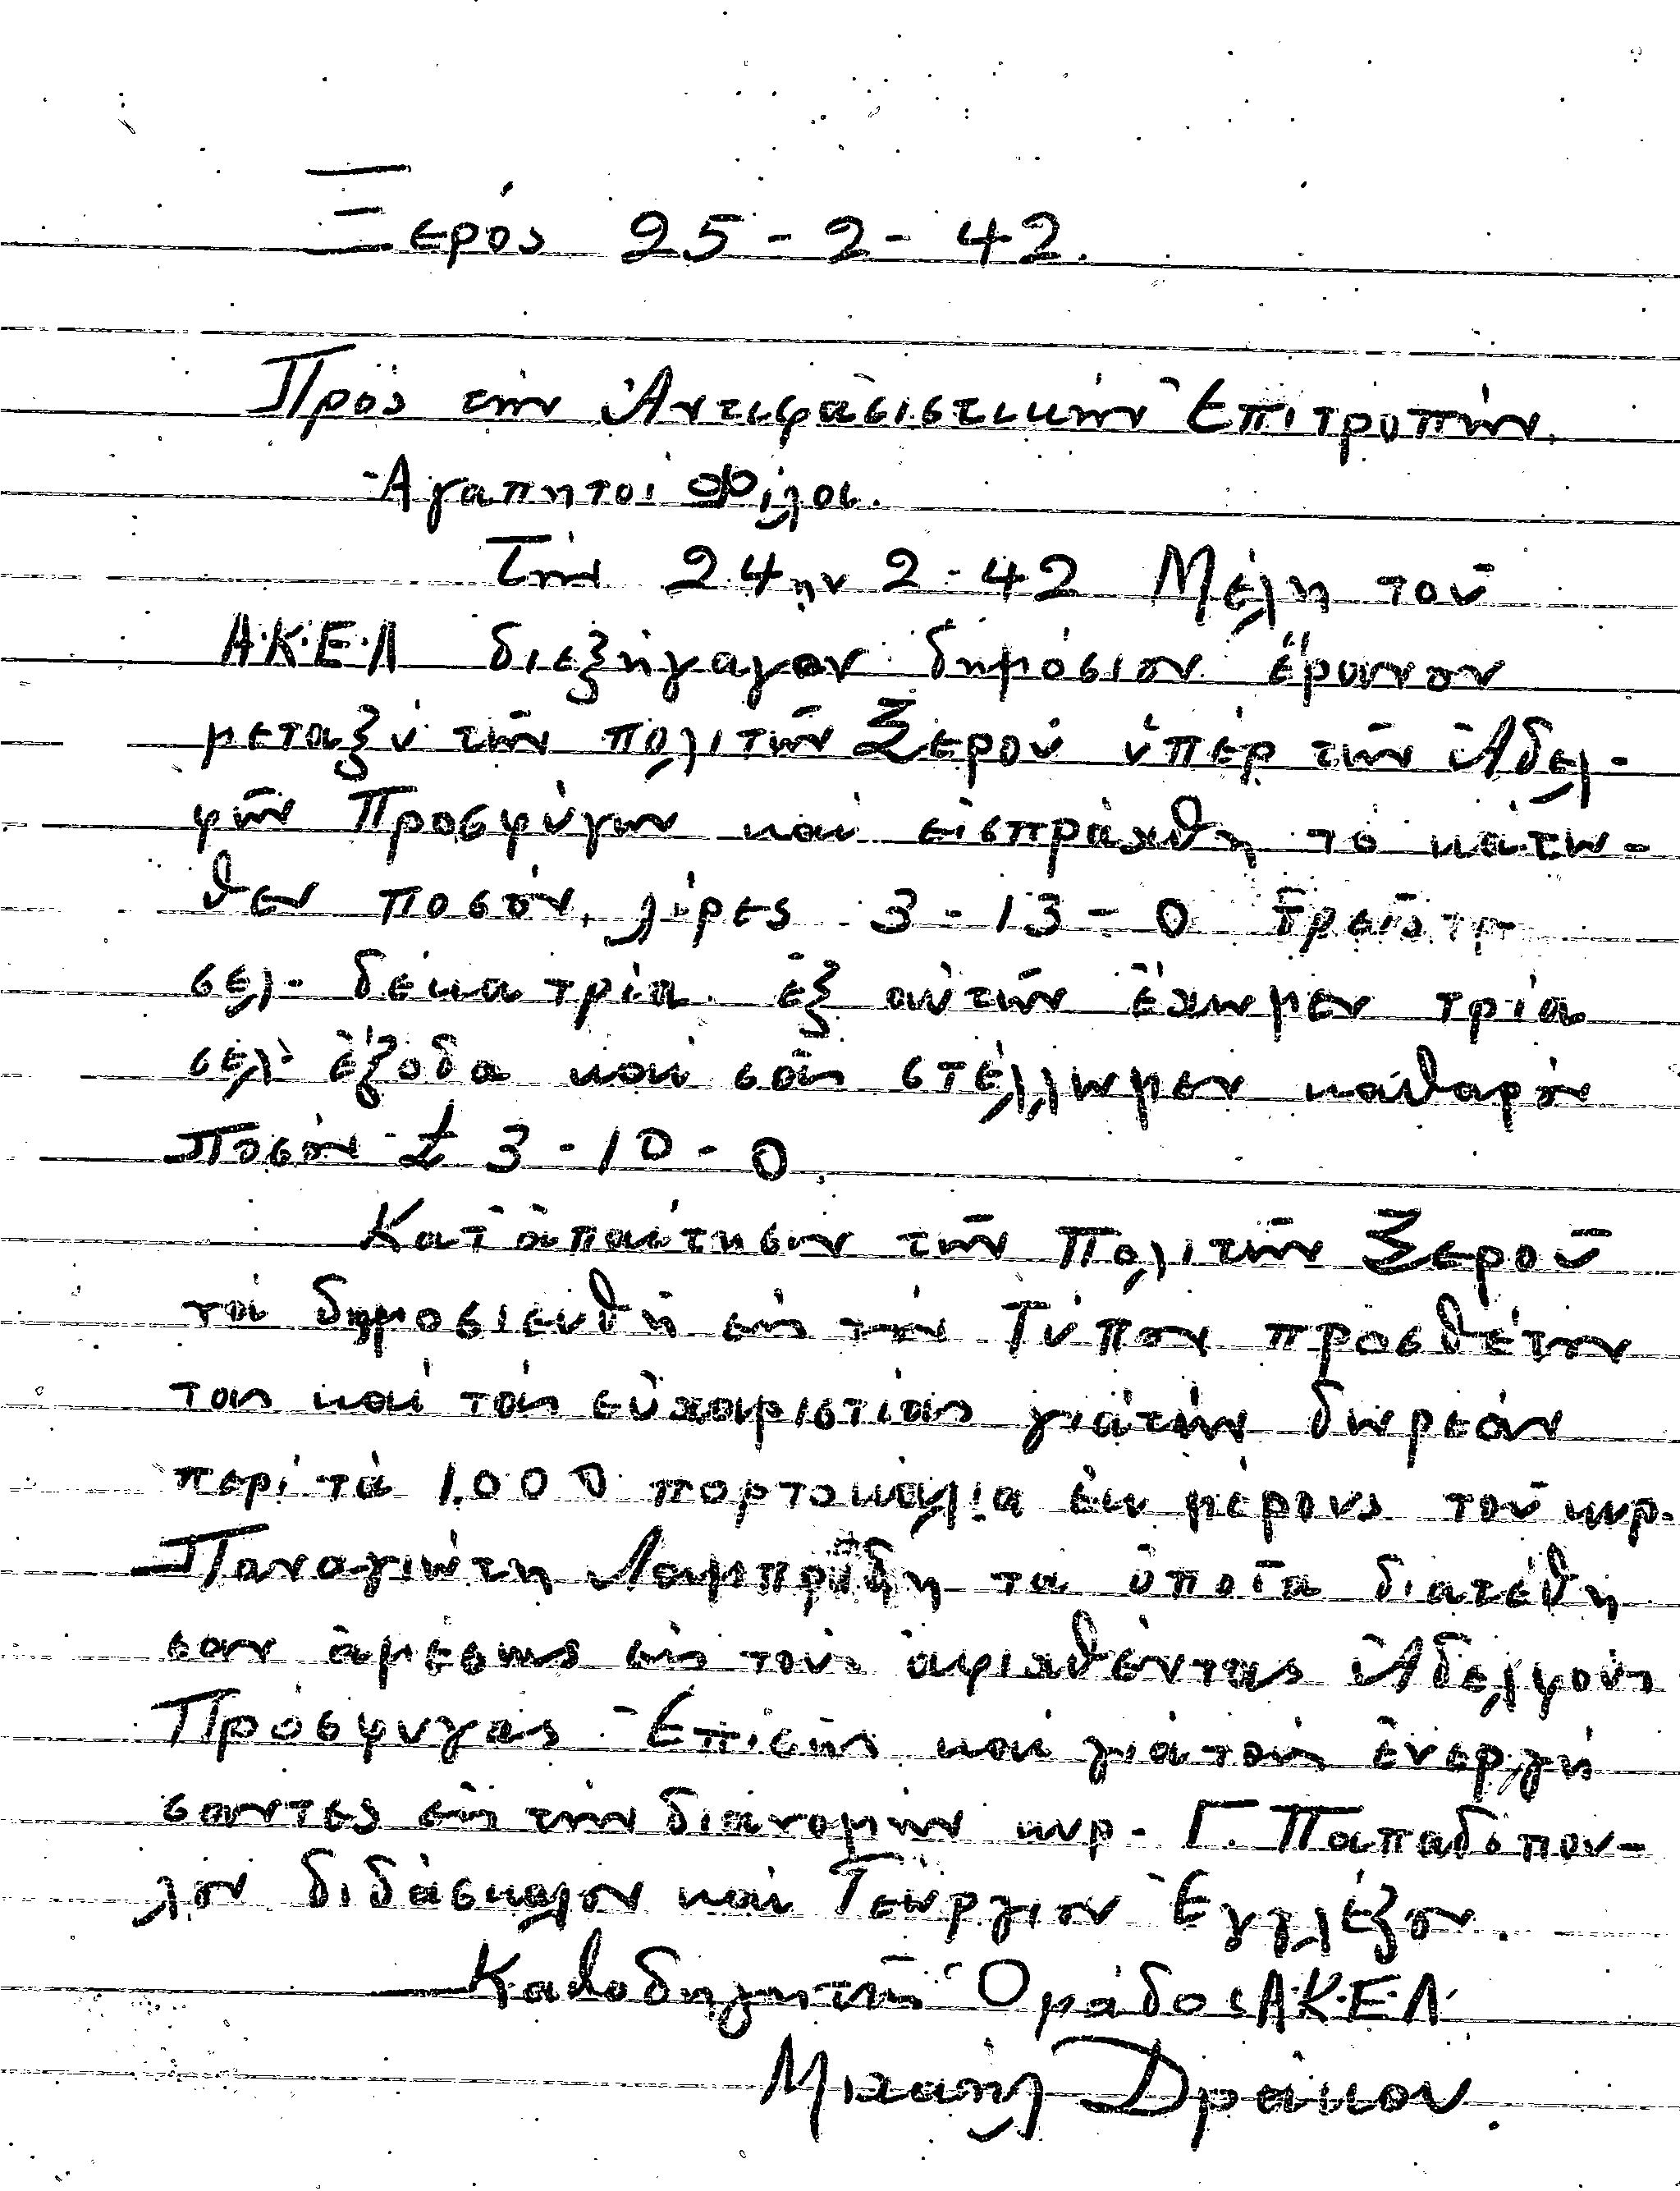 Ξερός 25-2-42.
Πρός τήν Ἀντιφασιστικήν Ἐπιτροπήν.
Ἀγαπητοί Φίλοι.
Τήν 24ην 2-42 Μέλη τοῦ
Α.Κ.Ε.Λ διεξήγαγον δημόσιον ἔρανον
μεταξύ τῶν πολιτῶν Ξερού ὑπέρ τῶν Ἀδελ-
φῶν Προσφύγων καί εἰσπράχθη τό κάτω-
θεν ποσόν, λίρες 3-13-0 τρεῖς
σελ. δέκα τρία. ἐξ αὐτῶν ἔχωμεν τρία
σελ. ἔξοδα καί σᾶς στέλλωμεν καθαρόν
ποσόν £ 3-10-0.
Κατ' ἀπαίτησιν τῶν Πολιτῶν Ξεροῦ
νά δημοσιευθῆ εἰς τόν Τύπον προσθέτων
τας καί τάς εὐχαριστίας γιά τήν δωρεάν
περί τά 1.000 πορτοκάλια ἐκ μέρους τοῦ κυρ.
Παναγιώτη Λαμπρίδη τα ὁποῖα διατέθη
σαν ἀμέσως εἰς τούς ἀφιχθέντας Ἀδελφούς
Πρόσφυγας Ἐπίσης καί γιά τούς ἐνεργή
σαντες εἰς τήν διανομήν κυρ. Γ. Παπαδόπου-
λον διδάσκαλον καί Γεώργιον Ἐγγλέζον.
Καθοδηγητής Ὁμάδος Α.Κ.Ε.Λ.
Μιχαήλ Δράκου.